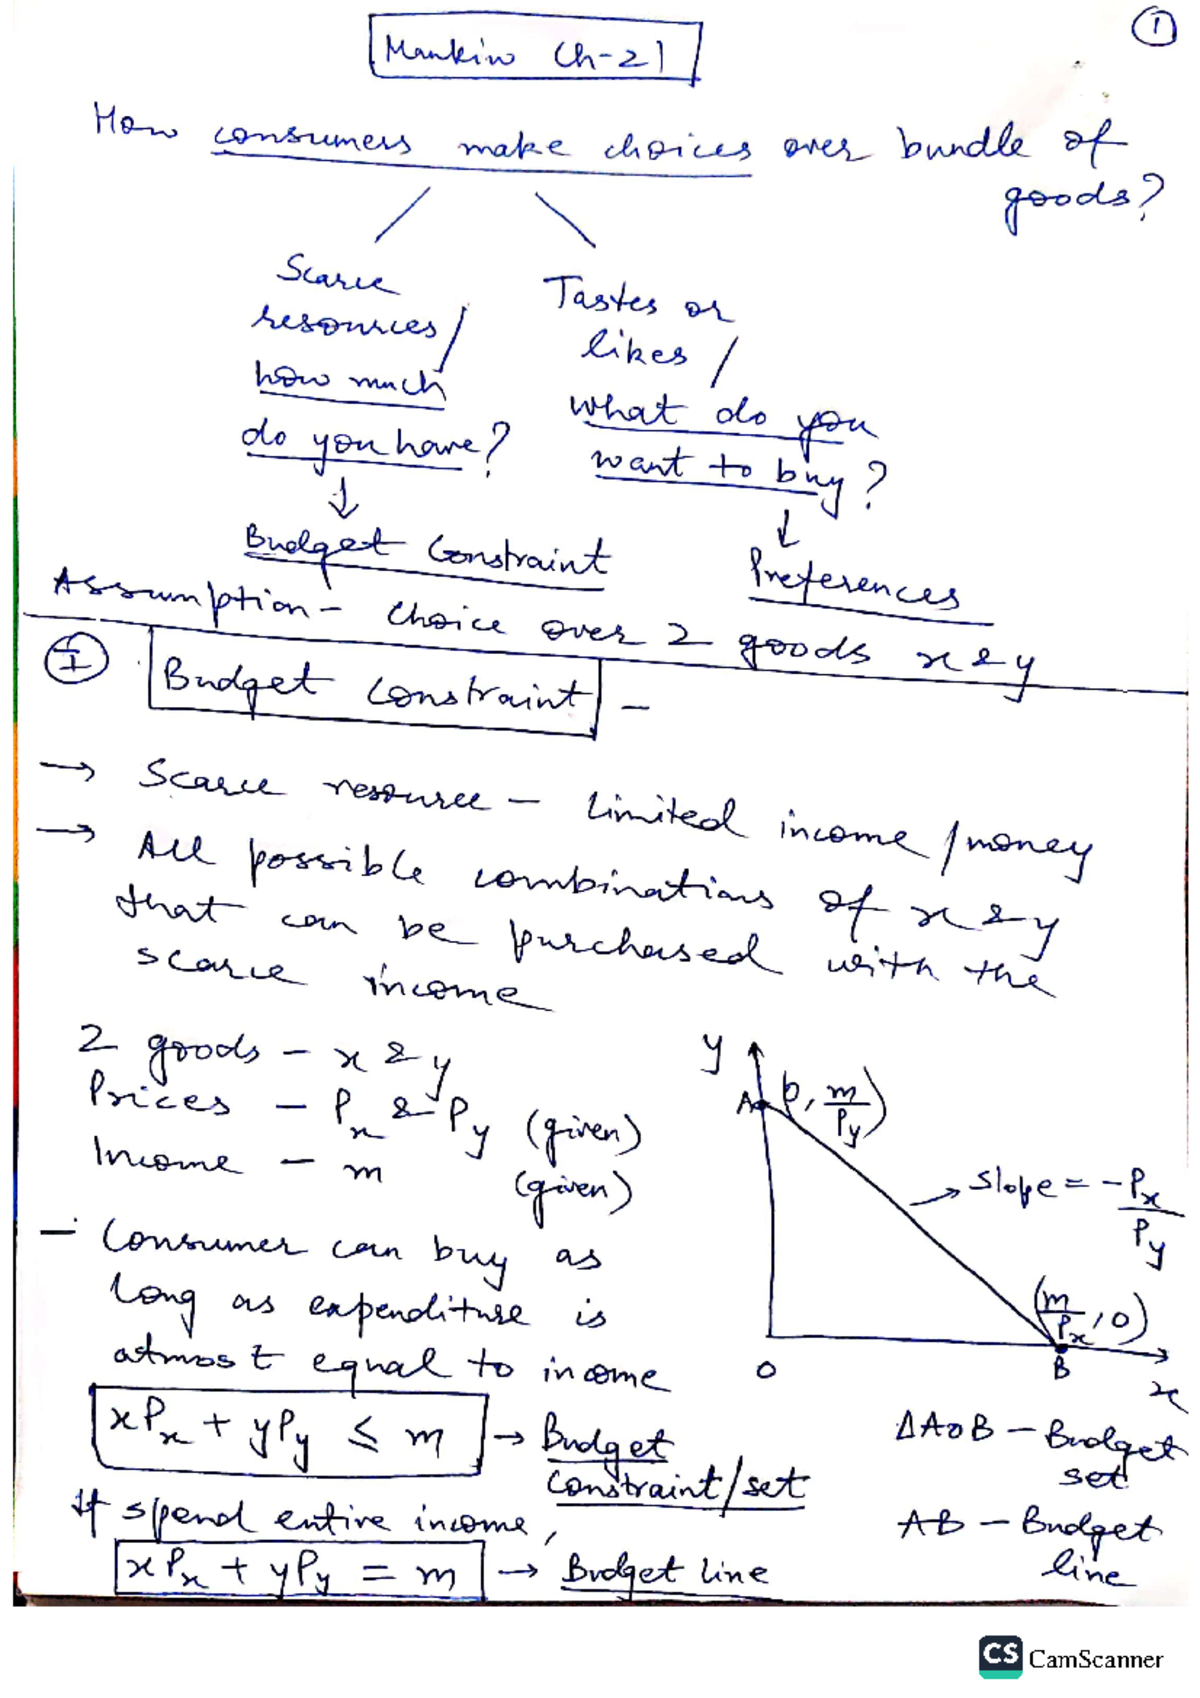 ①
Mankiw Ch-21
How consumers make choices over bundle of
goods?
Scarce
resources/
how much
do you have?
↓
Budget Constraint
Tastes or
likes /
what do you
want to buy?
↓
Preferences
Assumption - Choice over 2 goods x & y
I Budget Constraint -
→ Scarce resource - Limited income/money
→ All possible combinations of x & y
that can be purchased with the
scarce income
2 goods - x & y
Prices - Px & Py (given)
Income - m (given)
- Consumer can buy as
long as expenditure is
atmost equal to income
xPx + yPy ≤ m → Budget
Constraint/set
If spend entire income,
xPx + yPy = m → Budget Line
y
A (0, m/Py)
slope = -Px/Py
(m/Px, 0)
O
B
x
ΔAOB - Budget
set
AB - Budget
line
CS CamScanner